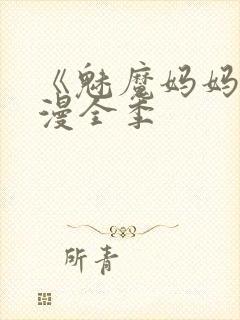 《魅魔妈妈
漫全季
所青